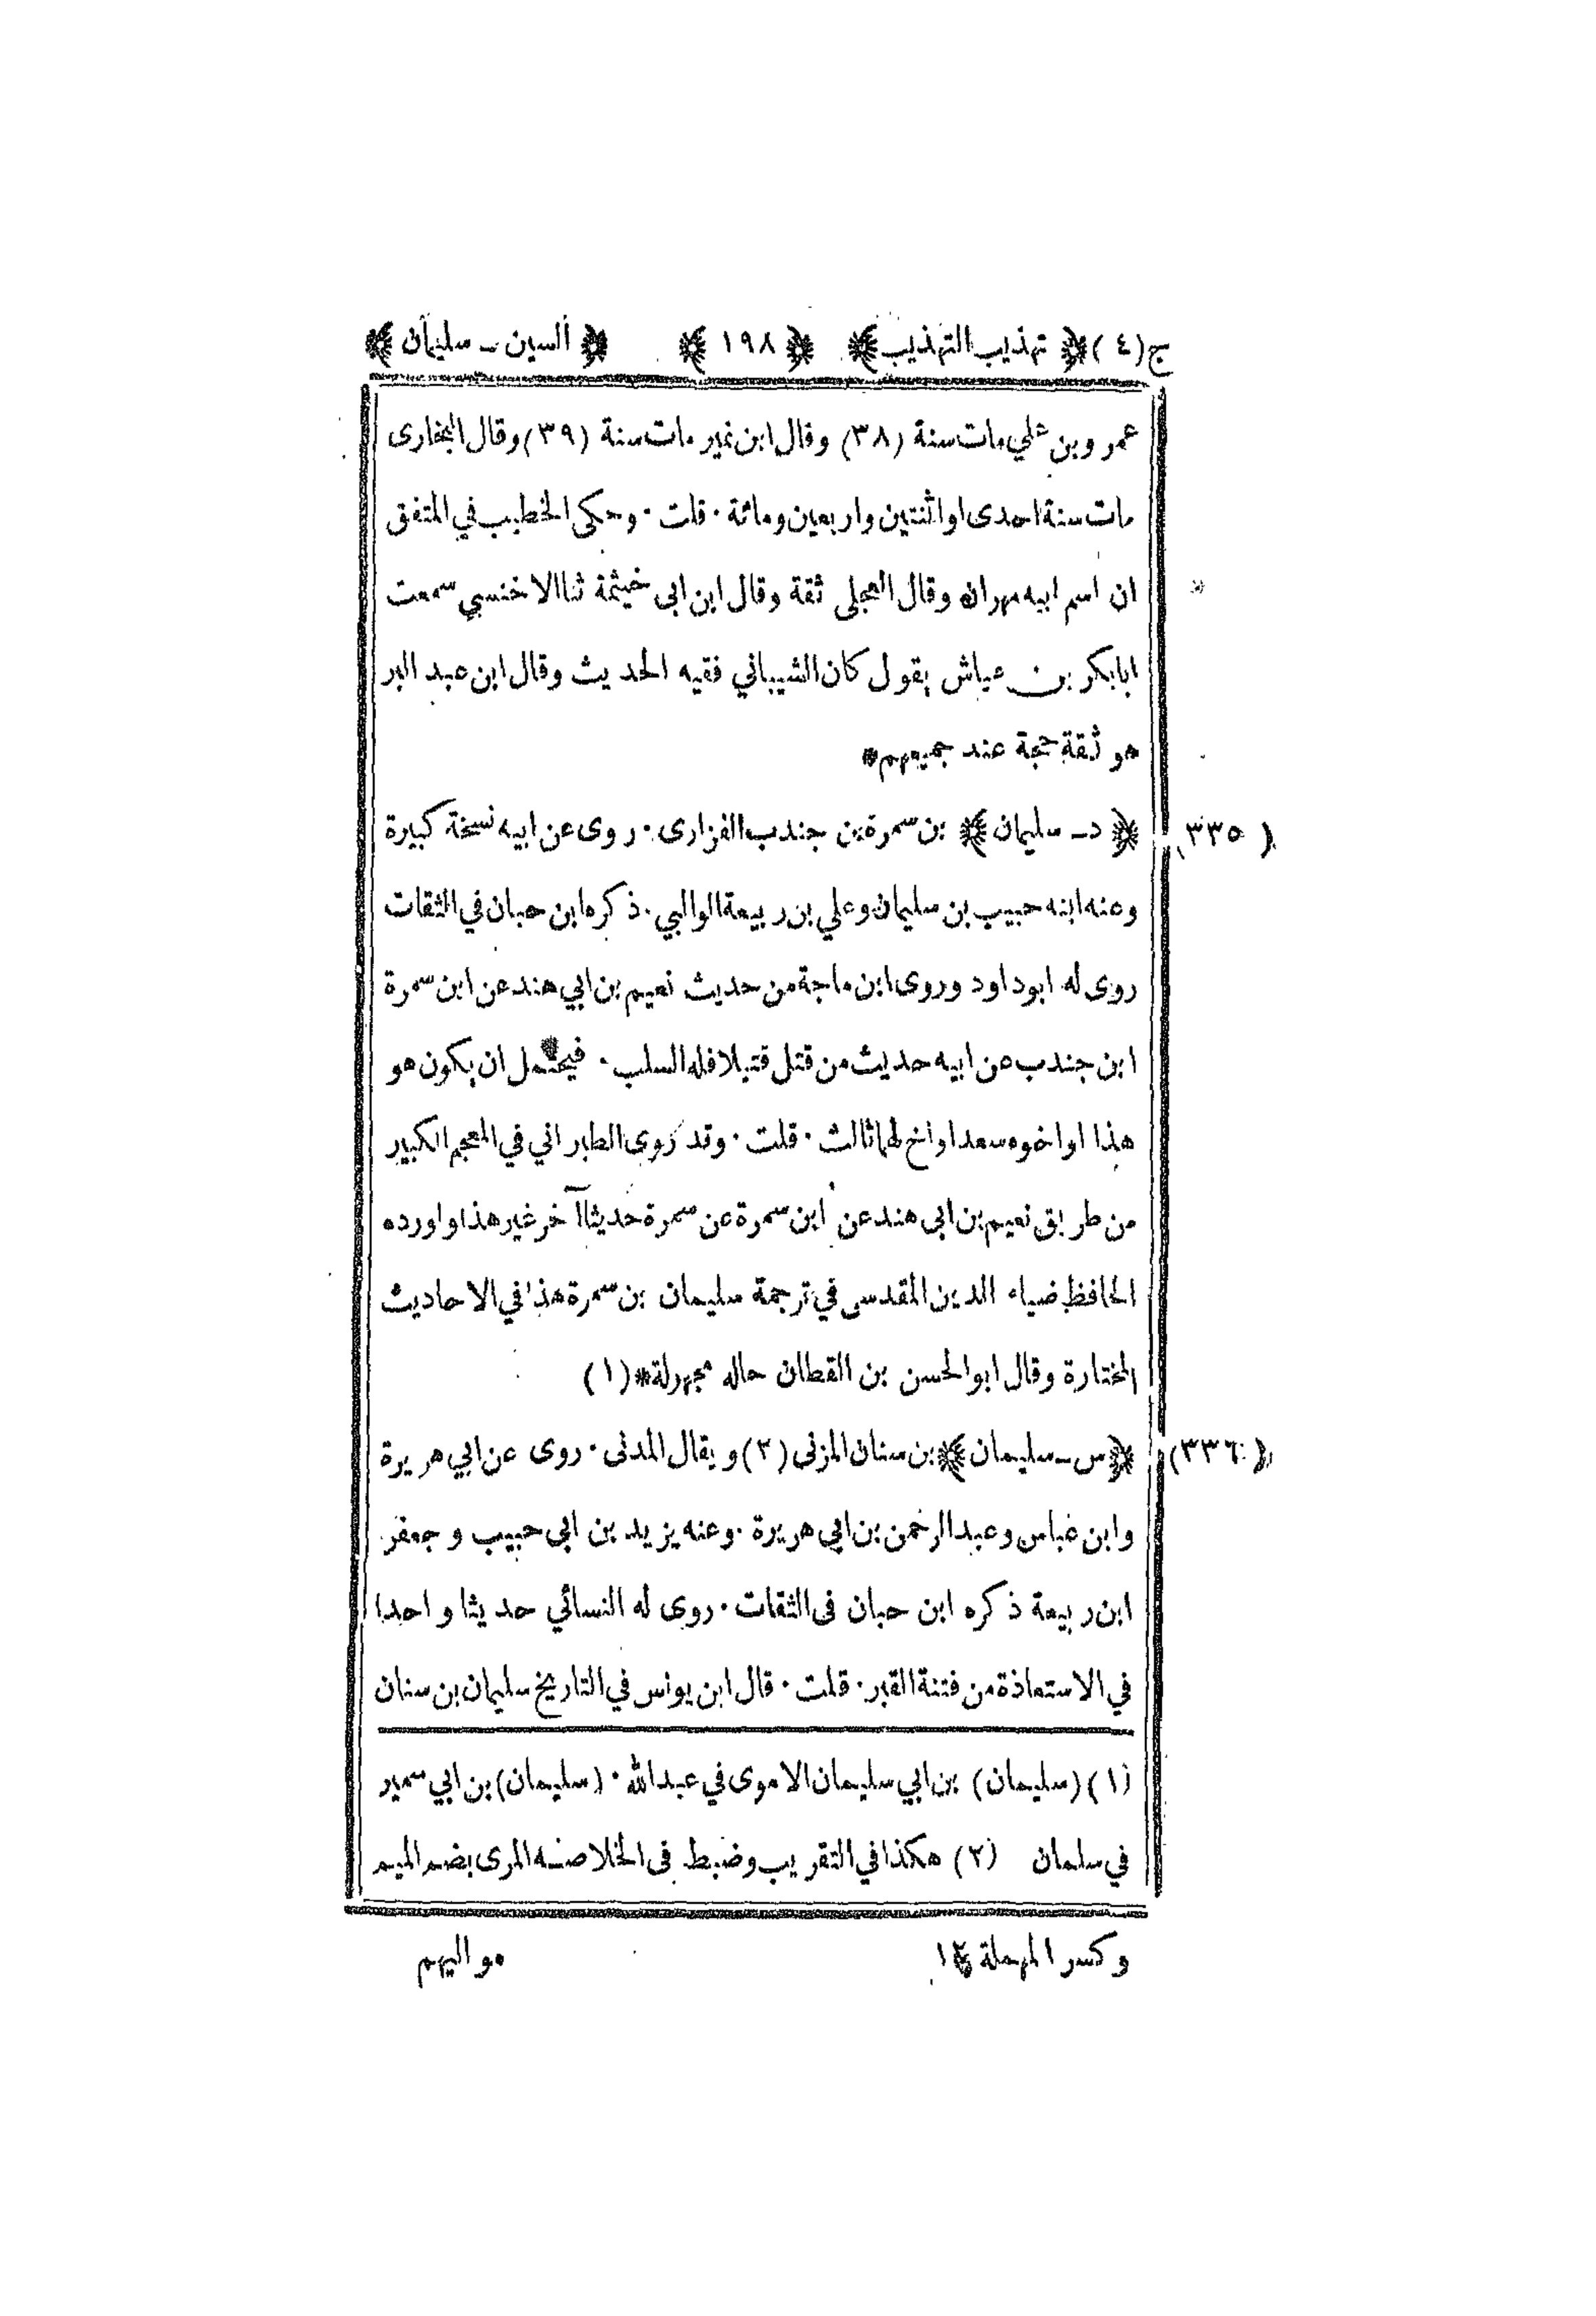 ج (٤) ﴿ تهذيب التهذيب ﴾ ﴿ ١٩٨ ﴾ ﴿ السين ـ سليمان ﴾
عمر وبن علي مات سنة (٣٨) وقال ابن نمير مات سنة (٣٩) وقال البخارى
مات سنة احدى او اثنتين واربعين ومائة ٠ قلت ٠ وحكى الخطيب في المتفق
ان اسم ابيه مهران وقال العجلى ثقة وقال ابن ابى خيثمة ثنا الاخنسي سمعت
ابا بكر بن عياش يقول كان الشيباني فقيه الحديث وقال ابن عبد البر
هو ثقة حجة عند جميعهم *
(٣٣٥) ﴿ د ـ سليمان ﴾ بن سمرة بن جندب الفزارى ٠ روى عن ابيه نسخة كبيرة
وعنه ابنه حبيب بن سليمان وعلي بن ربيعة الوالبي ٠ ذكره ابن حبان في الثقات
روى له ابو داود وروى ابن ماجة من حديث نعيم بن ابي هند عن ابن سمرة
ابن جندب عن ابيه حديث من قتل قتيلا فله السلب ٠ فيحتمل ان يكون هو
هذا او اخوه سعد او اخ لهما ثالث ٠ قلت ٠ وقد روى الطبراني في المعجم الكبير
من طريق نعيم بن ابى هند عن ابن سمرة عن سمرة حديثا آخر غير هذا واورده
الحافظ ضياء الدين المقدسى في ترجمة سليمان بن سمرة هذا في الاحاديث
المختارة وقال ابو الحسن بن القطان حاله مجهولة * (١)
(٣٣٦) ﴿ س ـ سليمان ﴾ بن سنان المزنى (٢) ويقال المدنى ٠ روى عن ابي هريرة
وابن عباس وعبد الرحمن بن ابي هريرة ٠ وعنه يزيد بن ابى حبيب وجعفر
ابن ربيعة ذكره ابن حبان فى الثقات ٠ روى له النسائي حديثا واحدا
في الاستعاذة من فتنة القبر ٠ قلت ٠ قال ابن يونس في التاريخ سليمان بن سنان
(١) (سليمان) بن ابي سليمان الاموى في عبد الله ٠ (سليمان) بن ابي سمير
في سلمان (٢) هكذا في التقريب وضبط فى الخلاصه المرى بضم الميم
وكسر المهملة ١٢ مواليهم